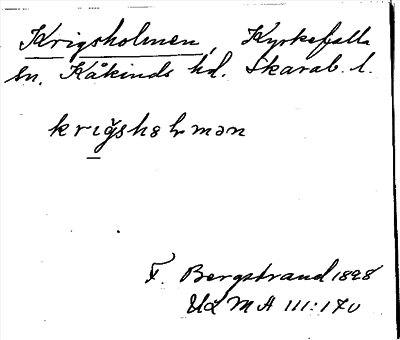 Krigsholmen, Kyrkefalla
sn. Kåkinds hd. Skarab. l.
krigshɵlmən
F. Bergstrand 1898
Ud M A III:170